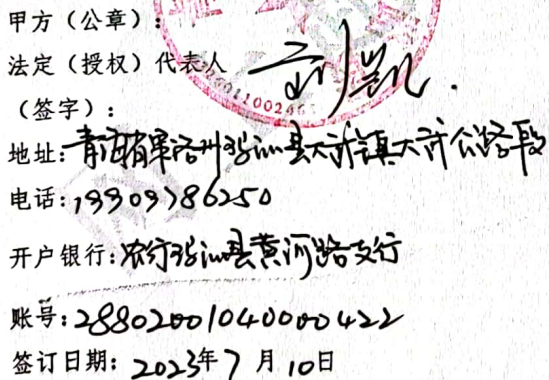 甲方（公章）：
法定（授权）代表人 刘凯
（签字）：
地址：青海省果洛州玛沁县大武镇大武公路段
电话：13909786250
开户银行：农行玛沁县黄河路支行
账号：28802001040000422
签订日期：2023年7月10日